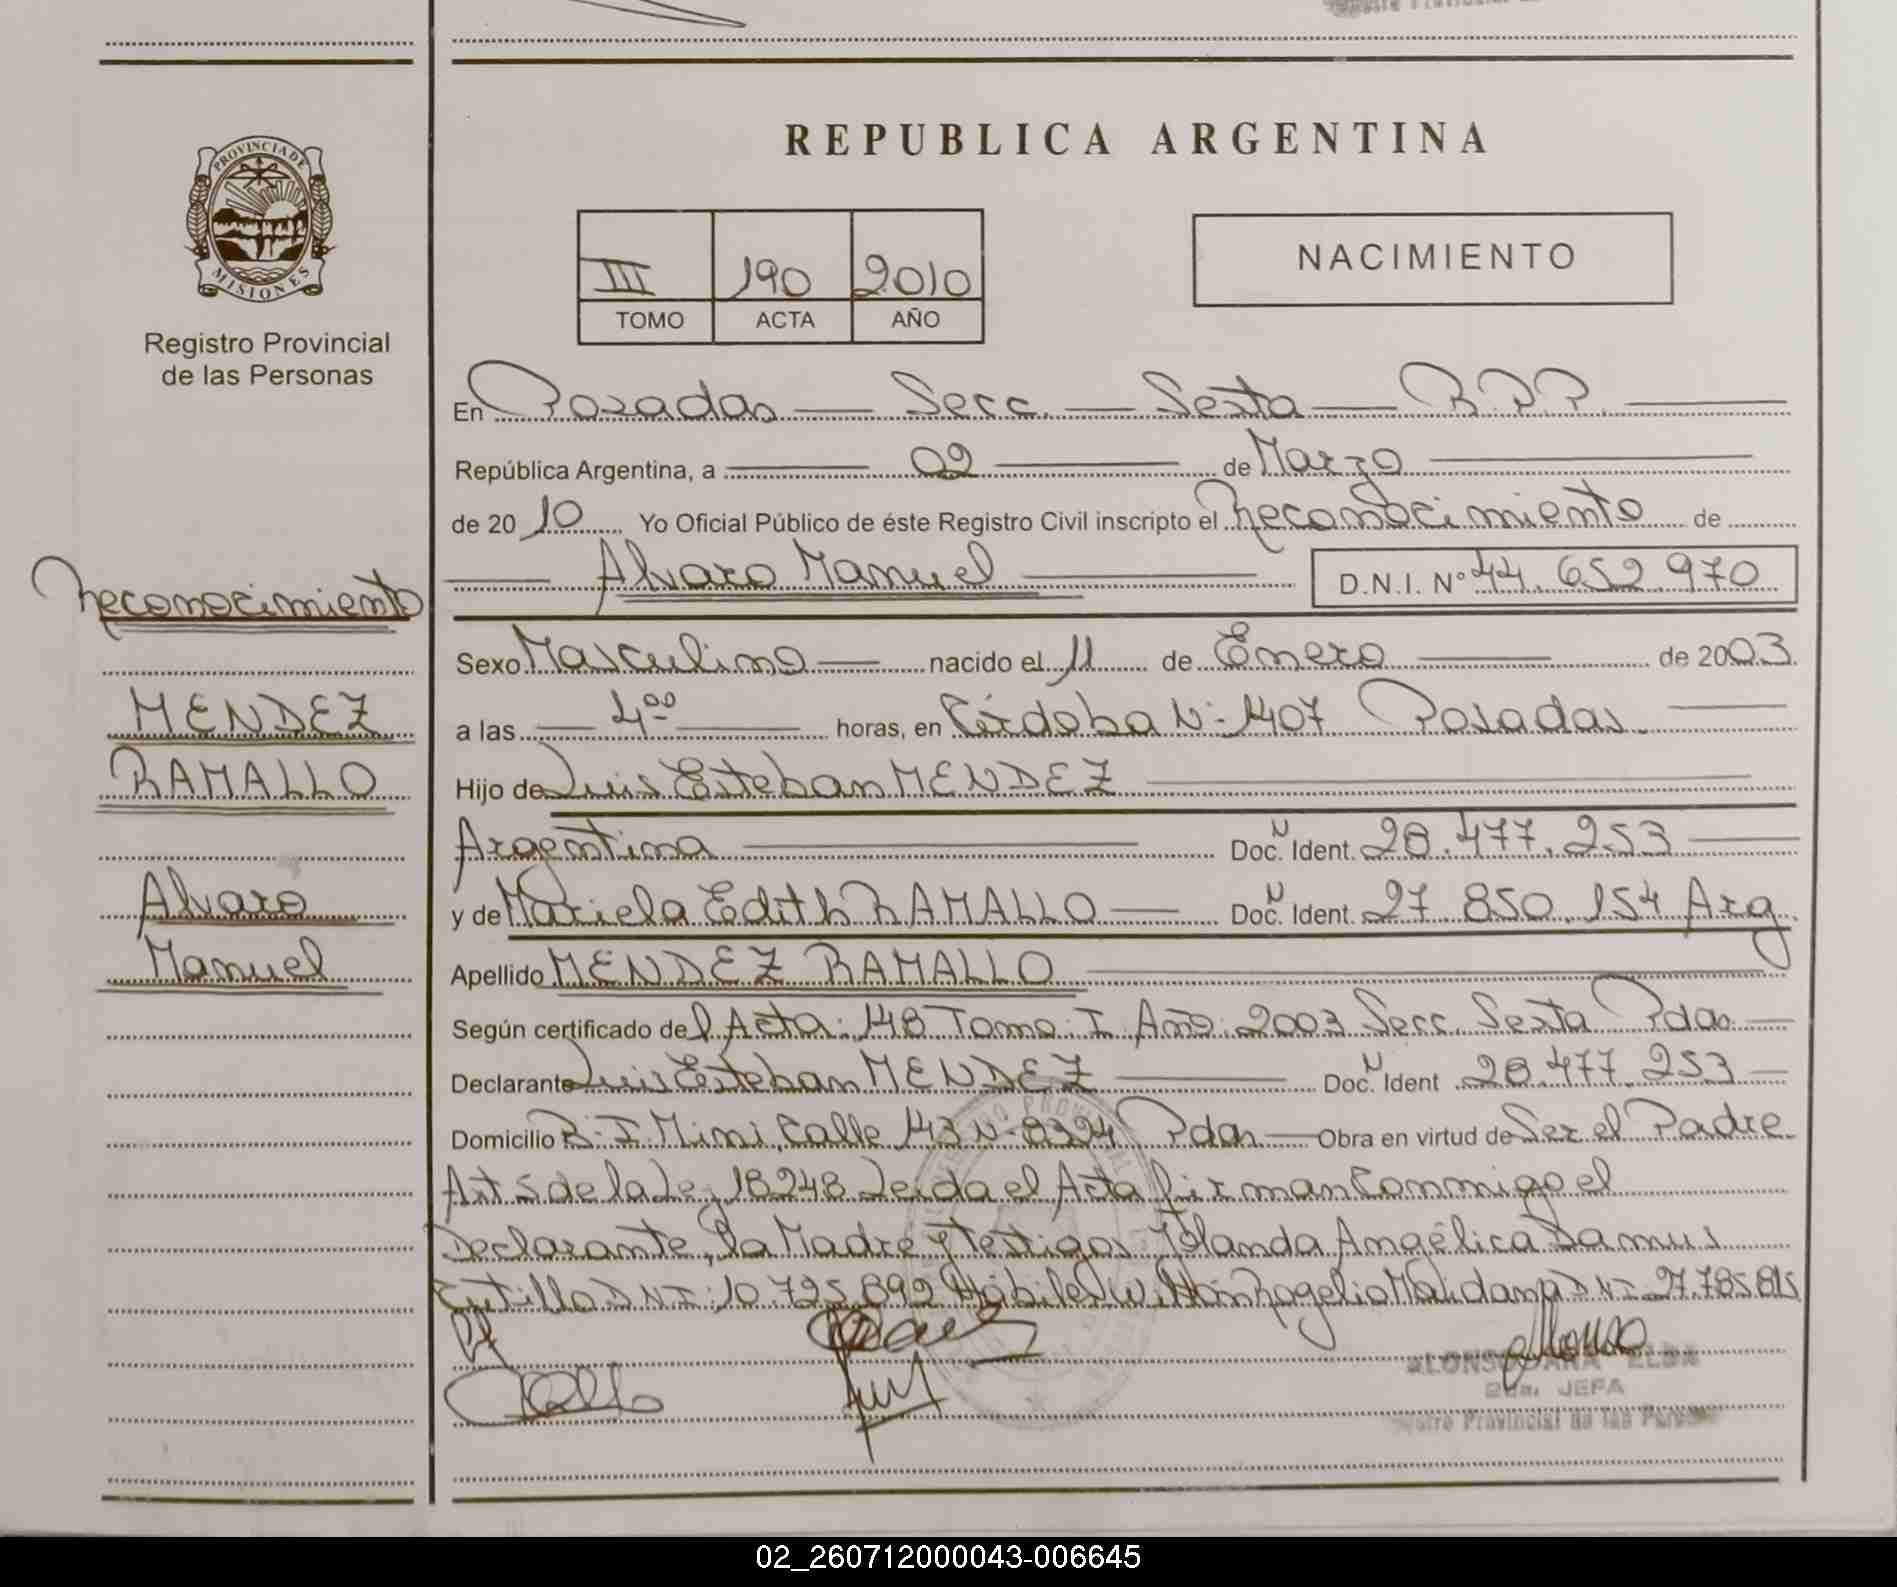 REPUBLICA ARGENTINA
PROVINCIA DE MISIONES
Registro Provincial
de las Personas
III 190 2010
TOMO ACTA AÑO
NACIMIENTO
En Posadas — Secc. — Sexta — R.P.P. —
República Argentina, a — 02 — de Marzo —
de 2010 Yo Oficial Público de éste Registro Civil inscripto el Reconocimiento de
— Alvaro Manuel — D.N.I. Nº 44.652.970
Reconocimiento
MENDEZ
RAMALLO
Alvaro
Manuel
Sexo Masculino — nacido el 11 de Enero — de 2003
a las — 4:00 — horas, en Córdoba Nº 1407 Posadas —
Hijo de Luis Esteban MENDEZ —
Argentina — Doc. Ident. 28.477.253 —
y de Mariela Edith RAMALLO — Doc. Ident. 27.850.154 Arg.
Apellido MENDEZ RAMALLO —
Según certificado del Acta: 148 Tomo: I Año: 2003 Secc. Sexta Pdas —
Declarante Luis Esteban MENDEZ — Doc. Ident 28.477.253 —
Domicilio B: I. Mini, Calle 143 Nº 8394 Pdas — Obra en virtud de Ser el Padre
Art 5 de la Ley 18248 Leida el Acta firman Conmigo el
Declarante, la Madre y Testigos Yolanda Angélica Samus
DNI: 10.725.892 Hábiles Rogelio DNI 27.785.815
ALONSO ELBA
2da. JEFA
Registro Provincial de las Personas
02_260712000043-006645